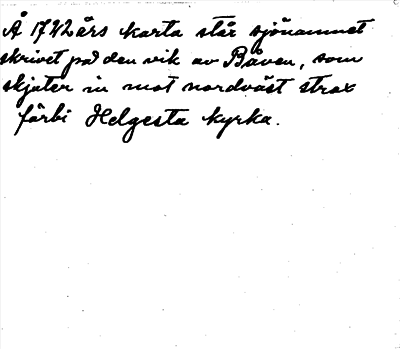 Å 1742 års karta står sjönamnet
skrivet på den vik av Båven, som
skjuter in mot nordväst strax
förbi Helgesta kyrka.